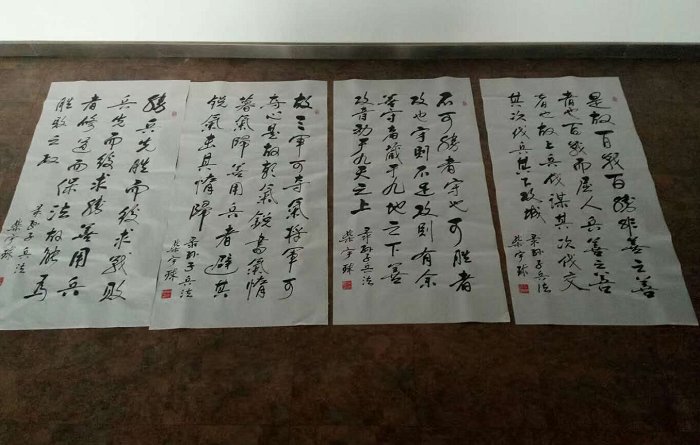 是故百戰百勝非善之善
者也不戰而屈人兵善之善
者也故上兵伐謀其次伐交
其次伐兵其下攻城
录孙子兵法
柴宇球
不可勝者守也可勝者
攻也守則不足攻則有余
善守者藏于九地之下善
攻者動于九天之上
录孙子兵法
柴宇球
故三軍可夺氣將軍可
夺心是故朝氣銳晝氣惰
暮氣歸善用兵者避其
銳氣击其惰歸
录孙子兵法
柴宇球
勝兵先勝而後求戰敗
兵先而後求勝善用兵
者修道而保法故能為
勝敗之政
录孙子兵法
柴宇球